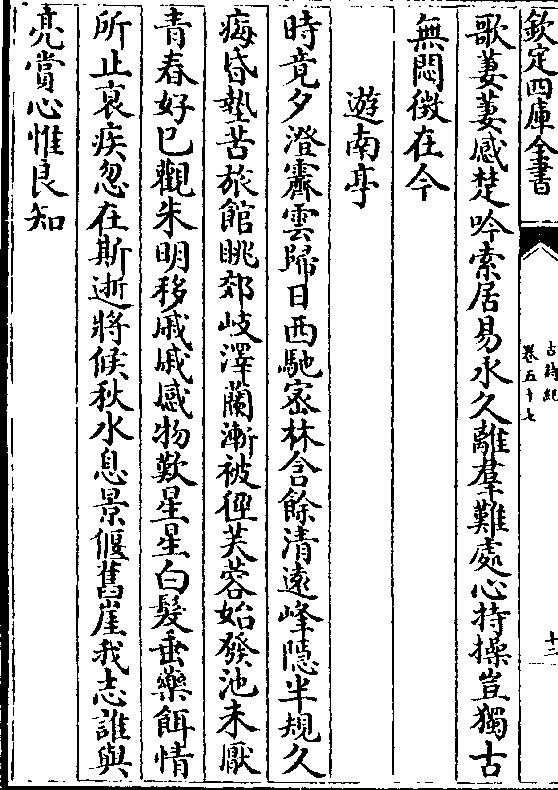 欽定四庫全書
古詩紀
卷五十七
十二
歌萋萋感楚吟索居易永久離羣難處心持操豈獨古
無悶徴在今
遊南亭
時竟夕澄霽雲歸日西馳宻林含餘清遠峰隱半規久
痗昏墊苦旅館眺郊岐澤蘭漸被徑芙蓉始發池未厭
青春好已觀朱明移戚戚感物歎星星白髪垂藥餌情
所止衰疾忽在斯逝將候秋水息景偃舊崖我志誰與
亮賞心惟良知